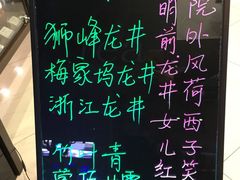 狮峰龙井
梅家坞龙井
浙江龙井
竹叶青
明前龙井女儿红
院外风荷西子笑